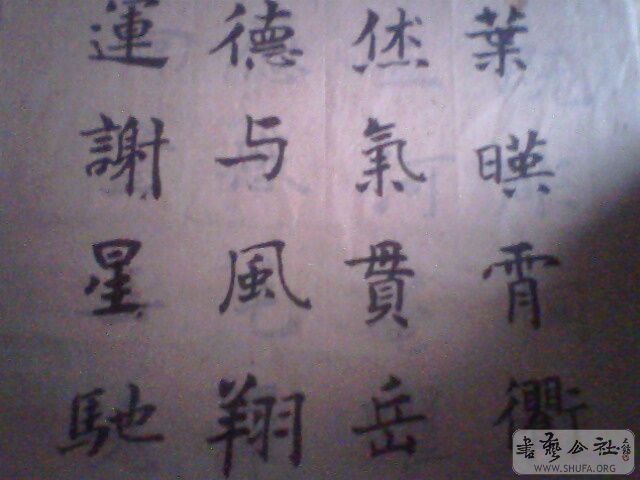 葉暎霄衢
烋氣貫岳
德与風翔
運謝星馳
WWW.SHUFA.ORG